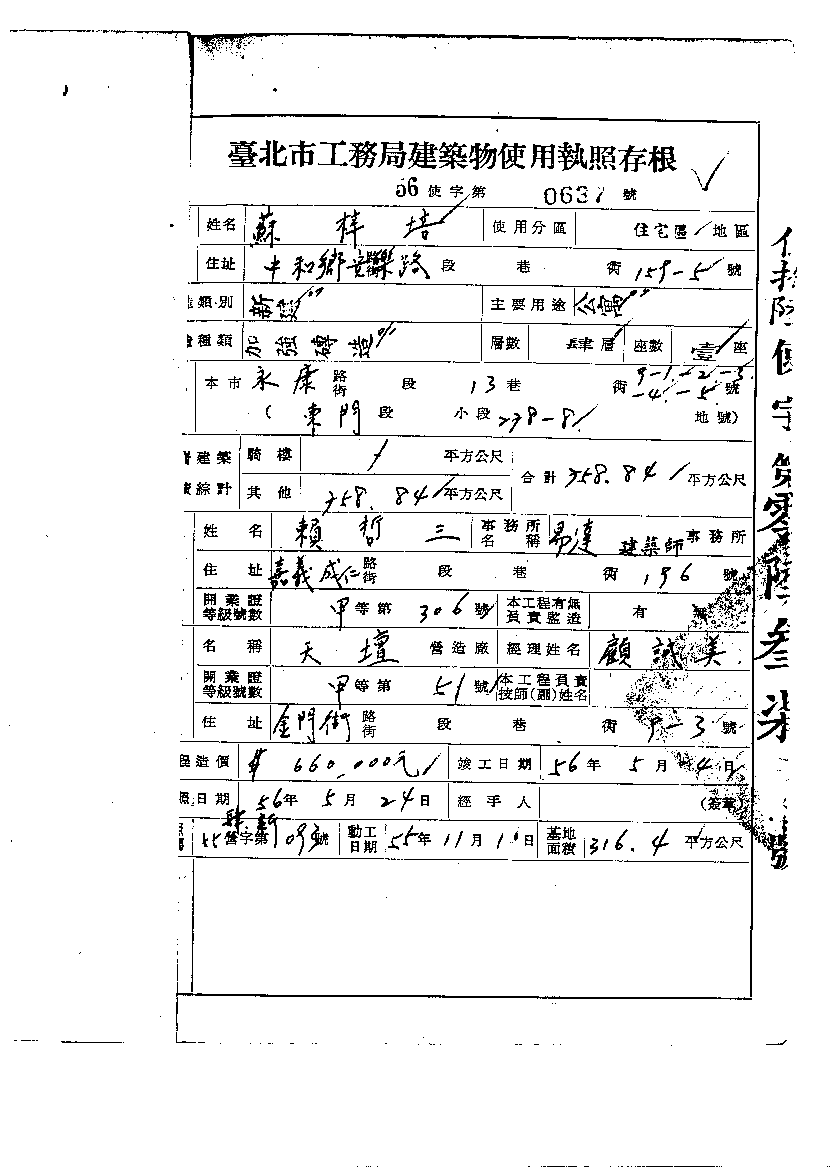 臺北市工務局建築物使用執照存根
56使字第 0637 號
姓名 蘇梓培 使用分區 住宅區 地區
住址 中和鄉安樂路 段 巷 街 159-5 號
類別 新建 主要用途 公寓
種類 加強磚造 層數 肆層 座數 壹座
本市 永康 路街 段 13巷 街 9-1-2-3-4-5 號
(東門 段 小段 地號)
建築 騎樓 / 平方公尺 合計 758.84 平方公尺
綜計 其他 758.84 平方公尺
姓名 賴哲三 事務所名稱 易達 建築師 事務所
住址 嘉義成仁 路街 段 巷 街 196 號
開業證等級號數 甲等第 306 號 本工程有無負責監造 有
名稱 天壇 營造廠 經理姓名 顧誠美
開業證等級號數 甲等第 51 號 本工程負責技師(副)姓名
住址 金門街 路街 段 巷 街 9-3 號
造價 $660,000元 竣工日期 56年 5月 4日
日期 56年 5月 24日 經手人 (簽章)
55營字第 093 號 動工日期 55年 11月 1日 基地面積 316.4 平方公尺
使字第零陸叁柒